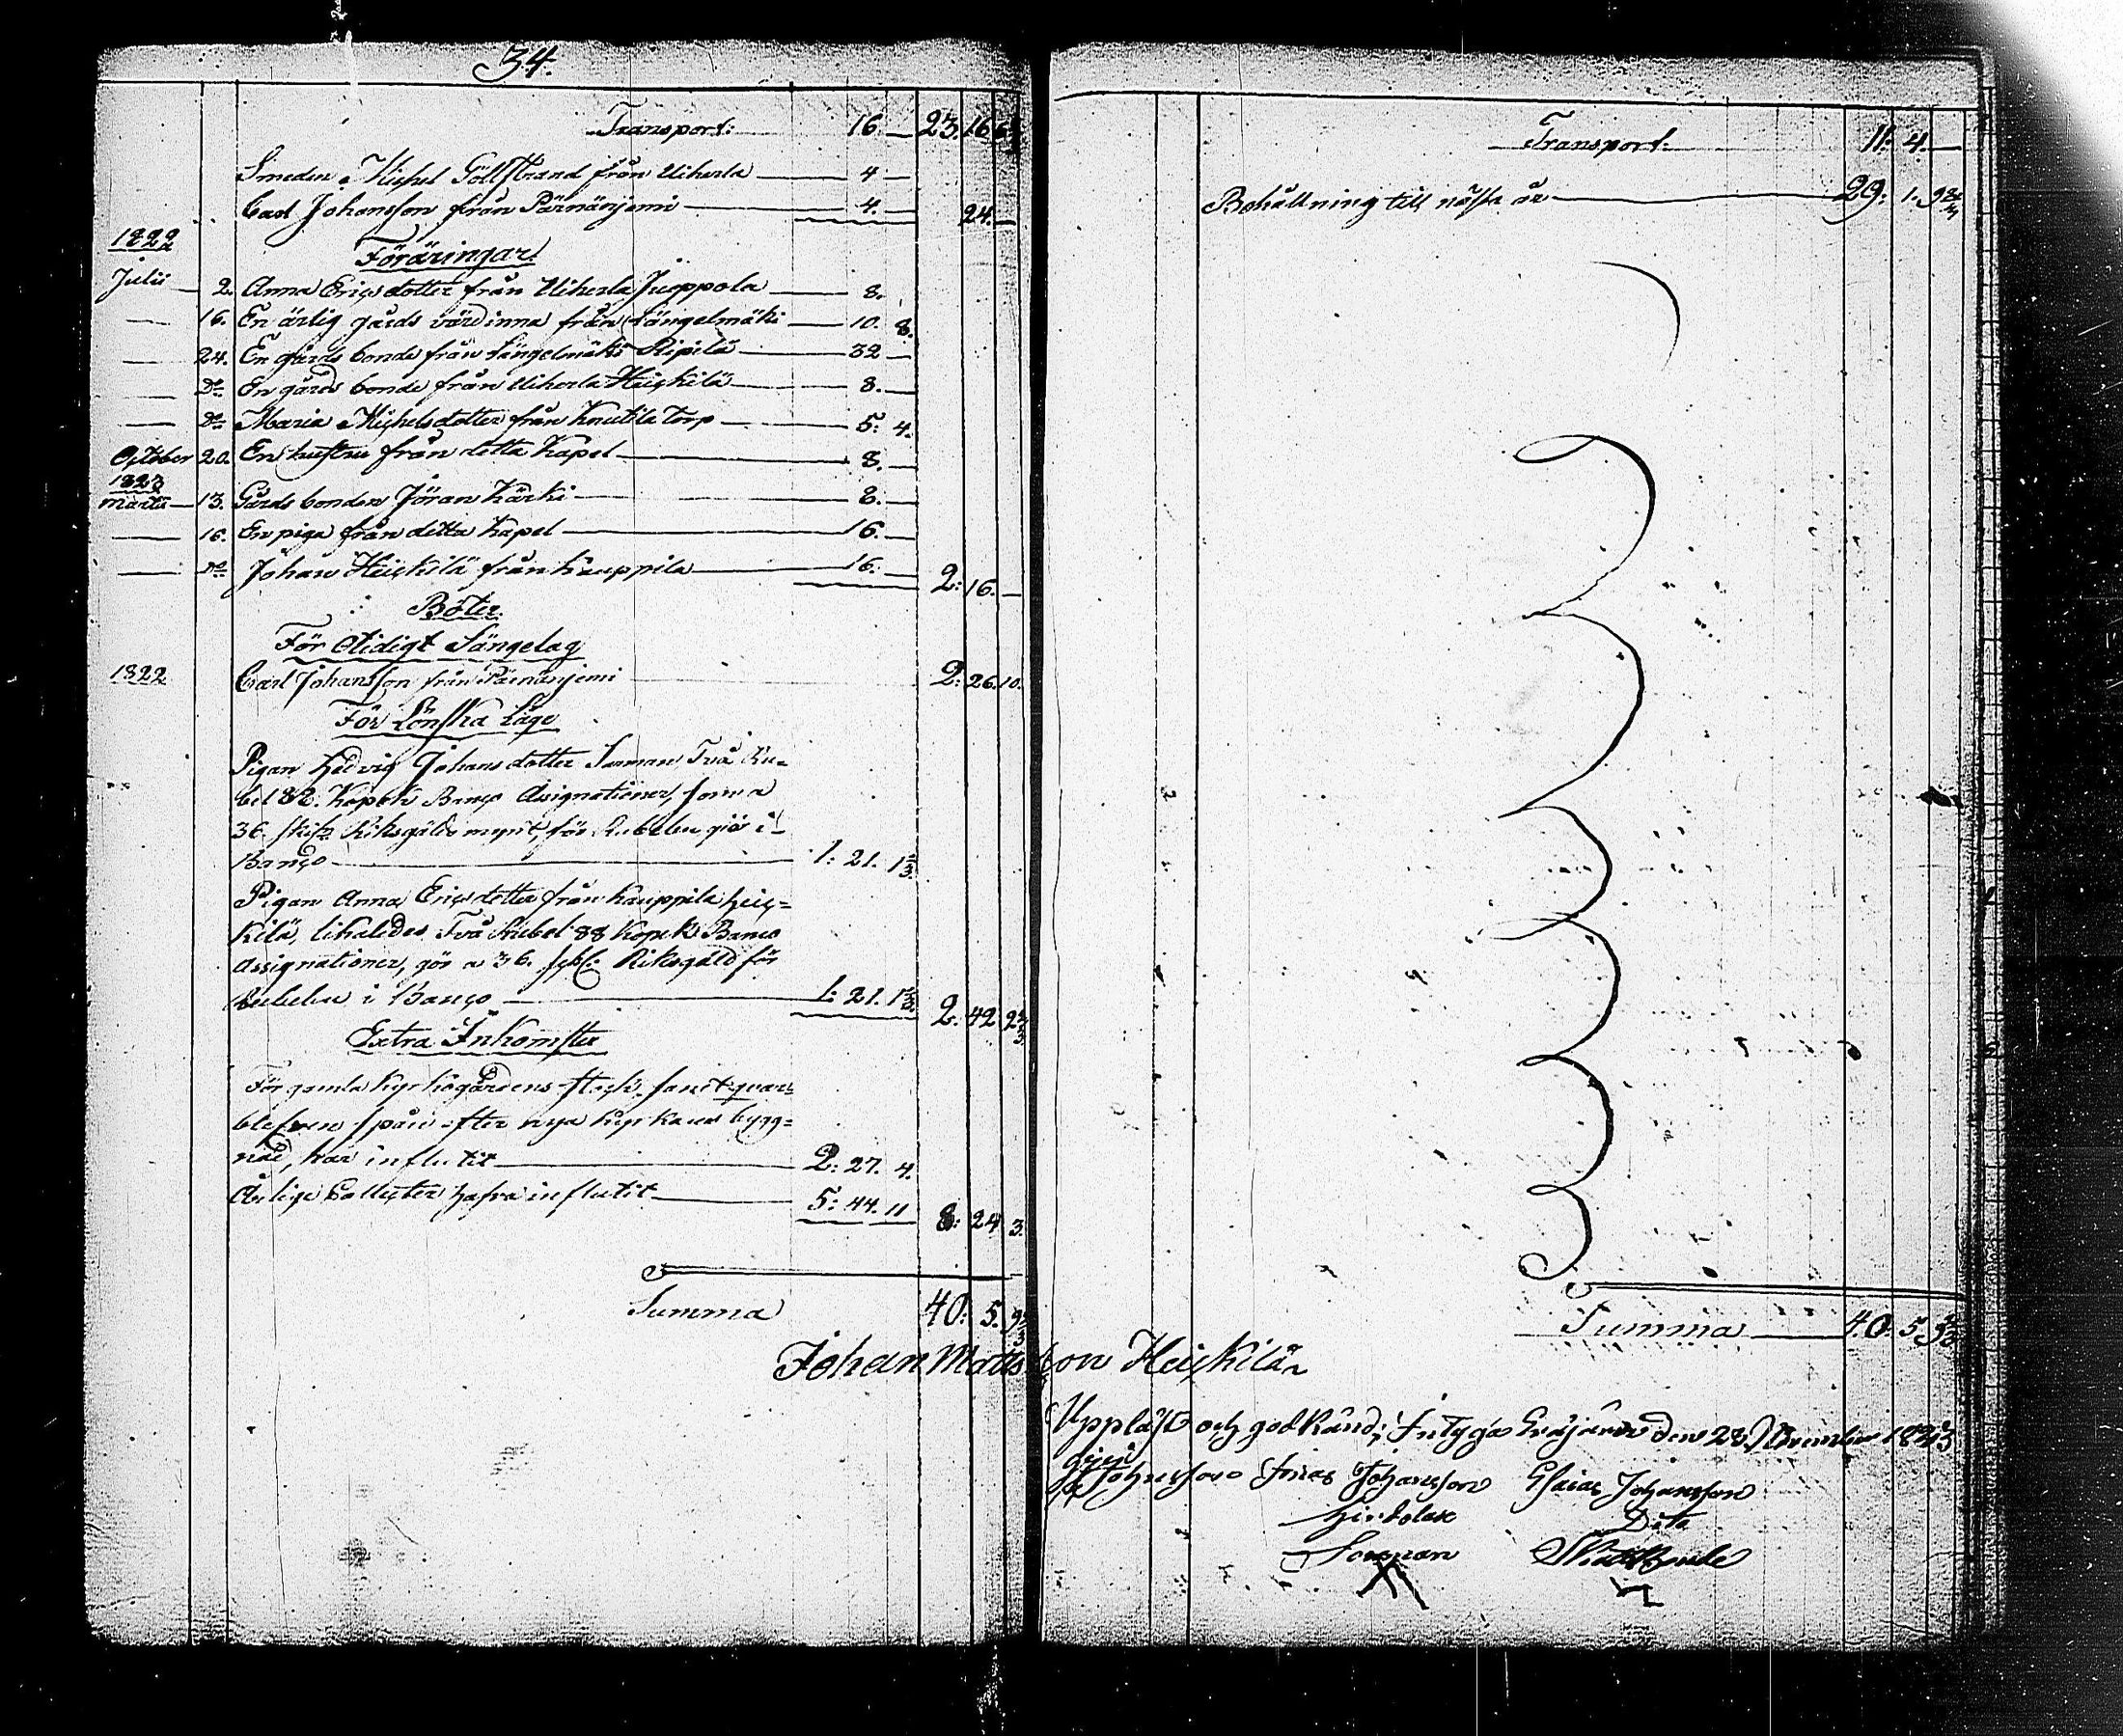 34.
Transport: 16. — 23. 16. 6
Smeden Michel Göllstrand från Uiherla — 4 —
Carl Johansson från Pärnänjemi — 4. — 24. —
1822
Föräringar
Julii — 2. Anna Ericsdotter från Uiherla Juoppola — 8.
— 16. En ärlig gårds värdinna från Längelmäki — 10. 8.
— 24. En gårds bonde från Längelmäki Ripilä — 32 —
— Do En gårds bonde från Uiherla Heickilä — 8. —
— Do Maria Michelsdotter från Knutila Torp — 5: 4.
October 20. En hustru från detta Kapel — 8. —
1823
Martii — 13. Gårds bonden Jöran Kärki — 8. —
— 16. En piga från detta Kapel — 16. —
— Do Johan Heickilä från Kauppila — 16: — 2: 16. —
Böter.
För Otidigt Sängelag
1822 Carl Johansson från Pärnänjemi 2: 26. 10.
För Lönska Läge
Pigan Hedvig Johansdotter Två Ru-
bel 88. Kopek Banco Assignationer, som a
36. Riksgälds mynt, för Rubeln giör i
Banco — 1: 21. 1 1/3.
Pigan Anna Ericsdotter från Kauppila Heic=
kilä, likaledes Två Rubel 88 Kopek Banco
Assignationer, gör a 36. Riksgäld för
Rubeln i Banco — 1: 21. 1 1/3. 2. 42. 2 2/3
Extra Inkomster
För gamla Kyrkogårdens samt quar=
blefven spån efter nya Kyrkans bygg=
nad, har influtit — 2: 27. 4.
Årlige Collecter hafva influtit — 5: 44. 11 8: 24. 3.
Summa 40. 5. 9 2/3
Johan Mattsson Heickilä
Transport. 11. 4. —
Behållning till nästa år — 29: 1. 9 2/3
Summa — 40. 5. 9 2/3
Uppläst och godkänd; Intygar Eräjärvi den 28 November 1823
Johansson Esaias Johansson
Dito